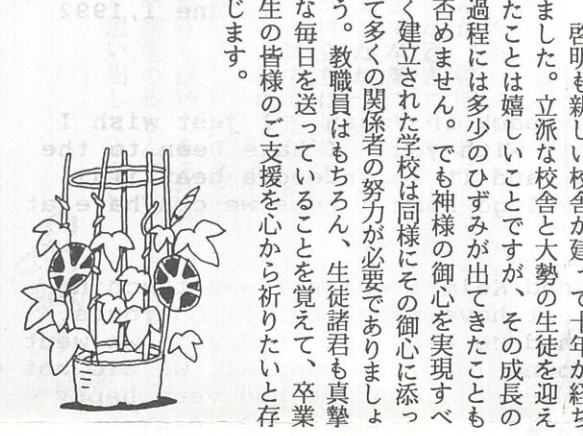 啓明も新しい校舎が建って十年が経ち
ました。立派な校舎と大勢の生徒を迎え
たことは嬉しいことですが、その成長の
過程には多少のひずみが出てきたことも
否めません。でも神様の御心を実現すべ
く建立された学校は同様にその御心に添っ
て多くの関係者の努力が必要でありましょ
う。教職員はもちろん、生徒諸君も真摯
な毎日を送っていることを覚えて、卒業
生の皆様のご支援を心から祈りたいと存
じます。